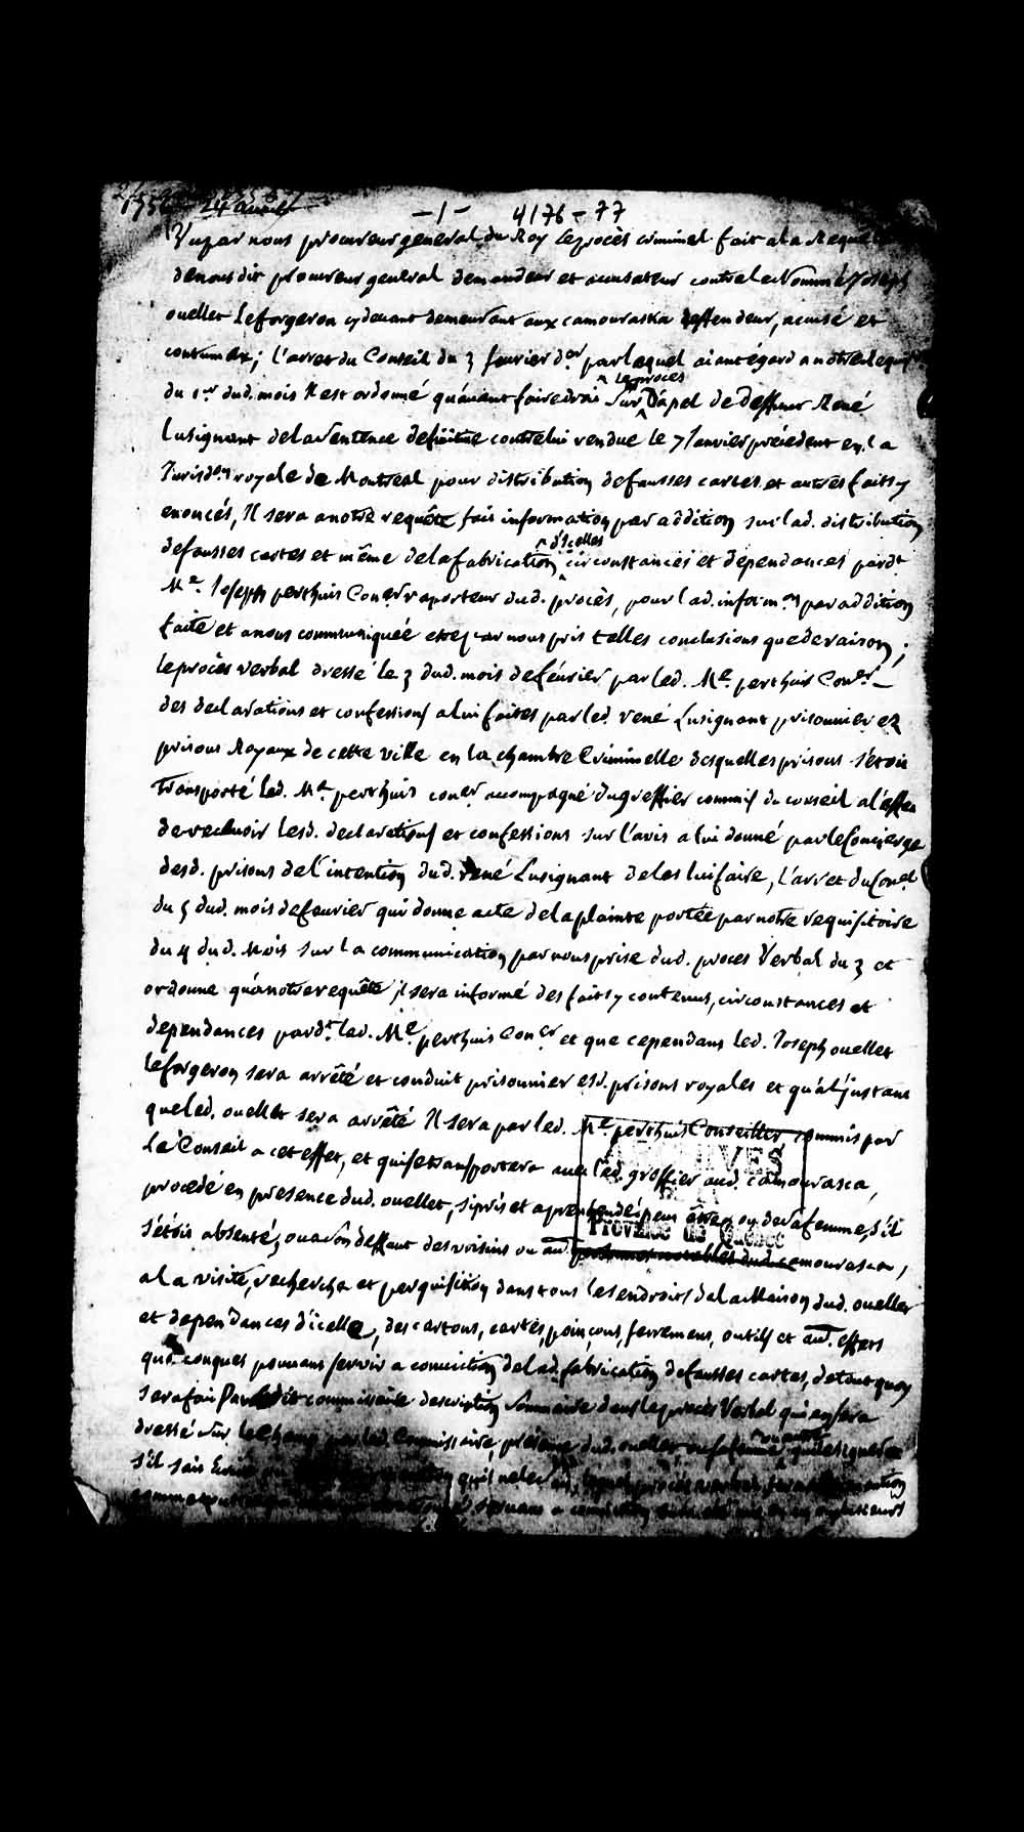 24 avril
-1- 4176-77
Vu par nous procureur general du Roy le procès criminel fait a la Requete
de nous dit procureur general demandeur et accusateur contre le Nommé Joseph
ouellet Leforgeron cy devant demeurant aux camouraska deffendeur, acusé et
contumax; l'arret du Conseil du 3 fevrier d.er par lequel aiant égard a notre
du 1er dud. mois Il est ordonné qu'avant faire droit sur le procès d'apel de deffunt René
Lusignant de la Sentence definitive contre lui rendue le 7 Janvier précedent en la
Jurisd.on royale de Montreal pour distribution de fausses cartes et autres faits y
enoncés, Il sera a notre requête fait information par addition sur lad. distribution
de fausses cartes et même de la fabrication d'icelles circonstances et dependances pard.t
Me. Joseph perthuis Coner raporteur dud. procès, pour lad. inform.on par addition
faite et a nous communiquée etre par nous pris telles conclusions que de raison;
le procès verbal dressé le 3 dud. mois de février par led. Me. perthuis Coner_
des declarations et confessions a lui faites par led. rené Lusignant prisonnier ez
prisons Royaux de cette ville en la chambre Criminelle desquelles prisons s'étoit
transporté led. Me perthuis coner accompagné du greffier commis du conseil a l'effet
de recevoir lesd. declarations et confessions sur l'avis a lui donné par le Concierge
desd. prisons de l'intention dud. rené Lusignant de les lui faire, l'arret du Conel
du 5 dud. mois de fevrier qui donne acte de la plainte portée par notre requisitoire
du 4 dud. mois sur la communication par nous prise dud. proces Verbal du 3 et
ordonne qu'a notre requête il sera informé des faits y contenus, circonstances et
dependances pard.t led. Me perthuis Coner et que cependant led. Joseph ouellet
Leforgeron sera arrêté et conduit prisonnier esd. prisons royales et qu'a l'instant
que led. ouellet sera arrêté Il sera par led. Me perthuis Conseiller, commis par
Le Conseil a cet effet, et qui se transportera avec led. greffier aud. camourasca,
procedé en presence dud. ouellet, si pris et aprehendé peut être, ou de sa femme, s'il
s'étoit absenté, ou a son deffaut des voisins ou au. camourasca,
a la visite, recherche et perquisition dans tous les endroits de la Maison dud. ouellet
et dependances d'icelle, des cartons, cartes, poinçons, ferremens, outils et au. effets
quelconques pouvans servir a conviction de lad. fabrication de fausses cartes, de tout quoy
sera fait par led. commissaire description Sommaire dans le procès Verbal qui en sera
dressé sur le Champ par led. Commissaire, presence dud. ouellet,
s'il sait
ARCHIVES
Province de Québec